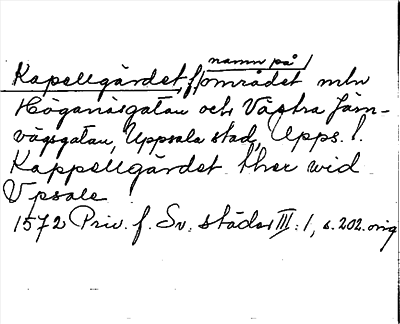 namn på
Kapellgärdet, f. området mln
Höganäsgatan och Västra Järn-
vägsgatan, Uppsala stad, Upps. l.
Kappellgärdet ther wid
Vpsale
1572 Priv. f. Sv. städer III: 1, s. 202. orig